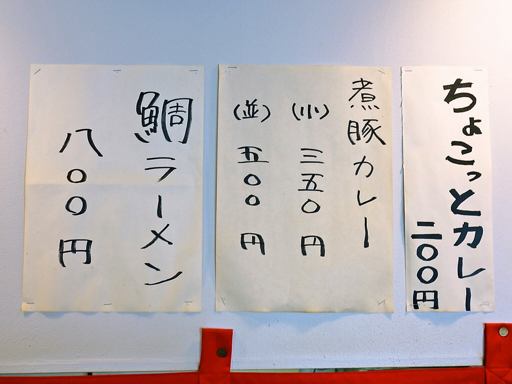 ちょこっとカレー
二〇〇円
煮豚カレー
(小) 三五〇円
(並) 五〇〇円
鯛ラーメン
八〇〇円